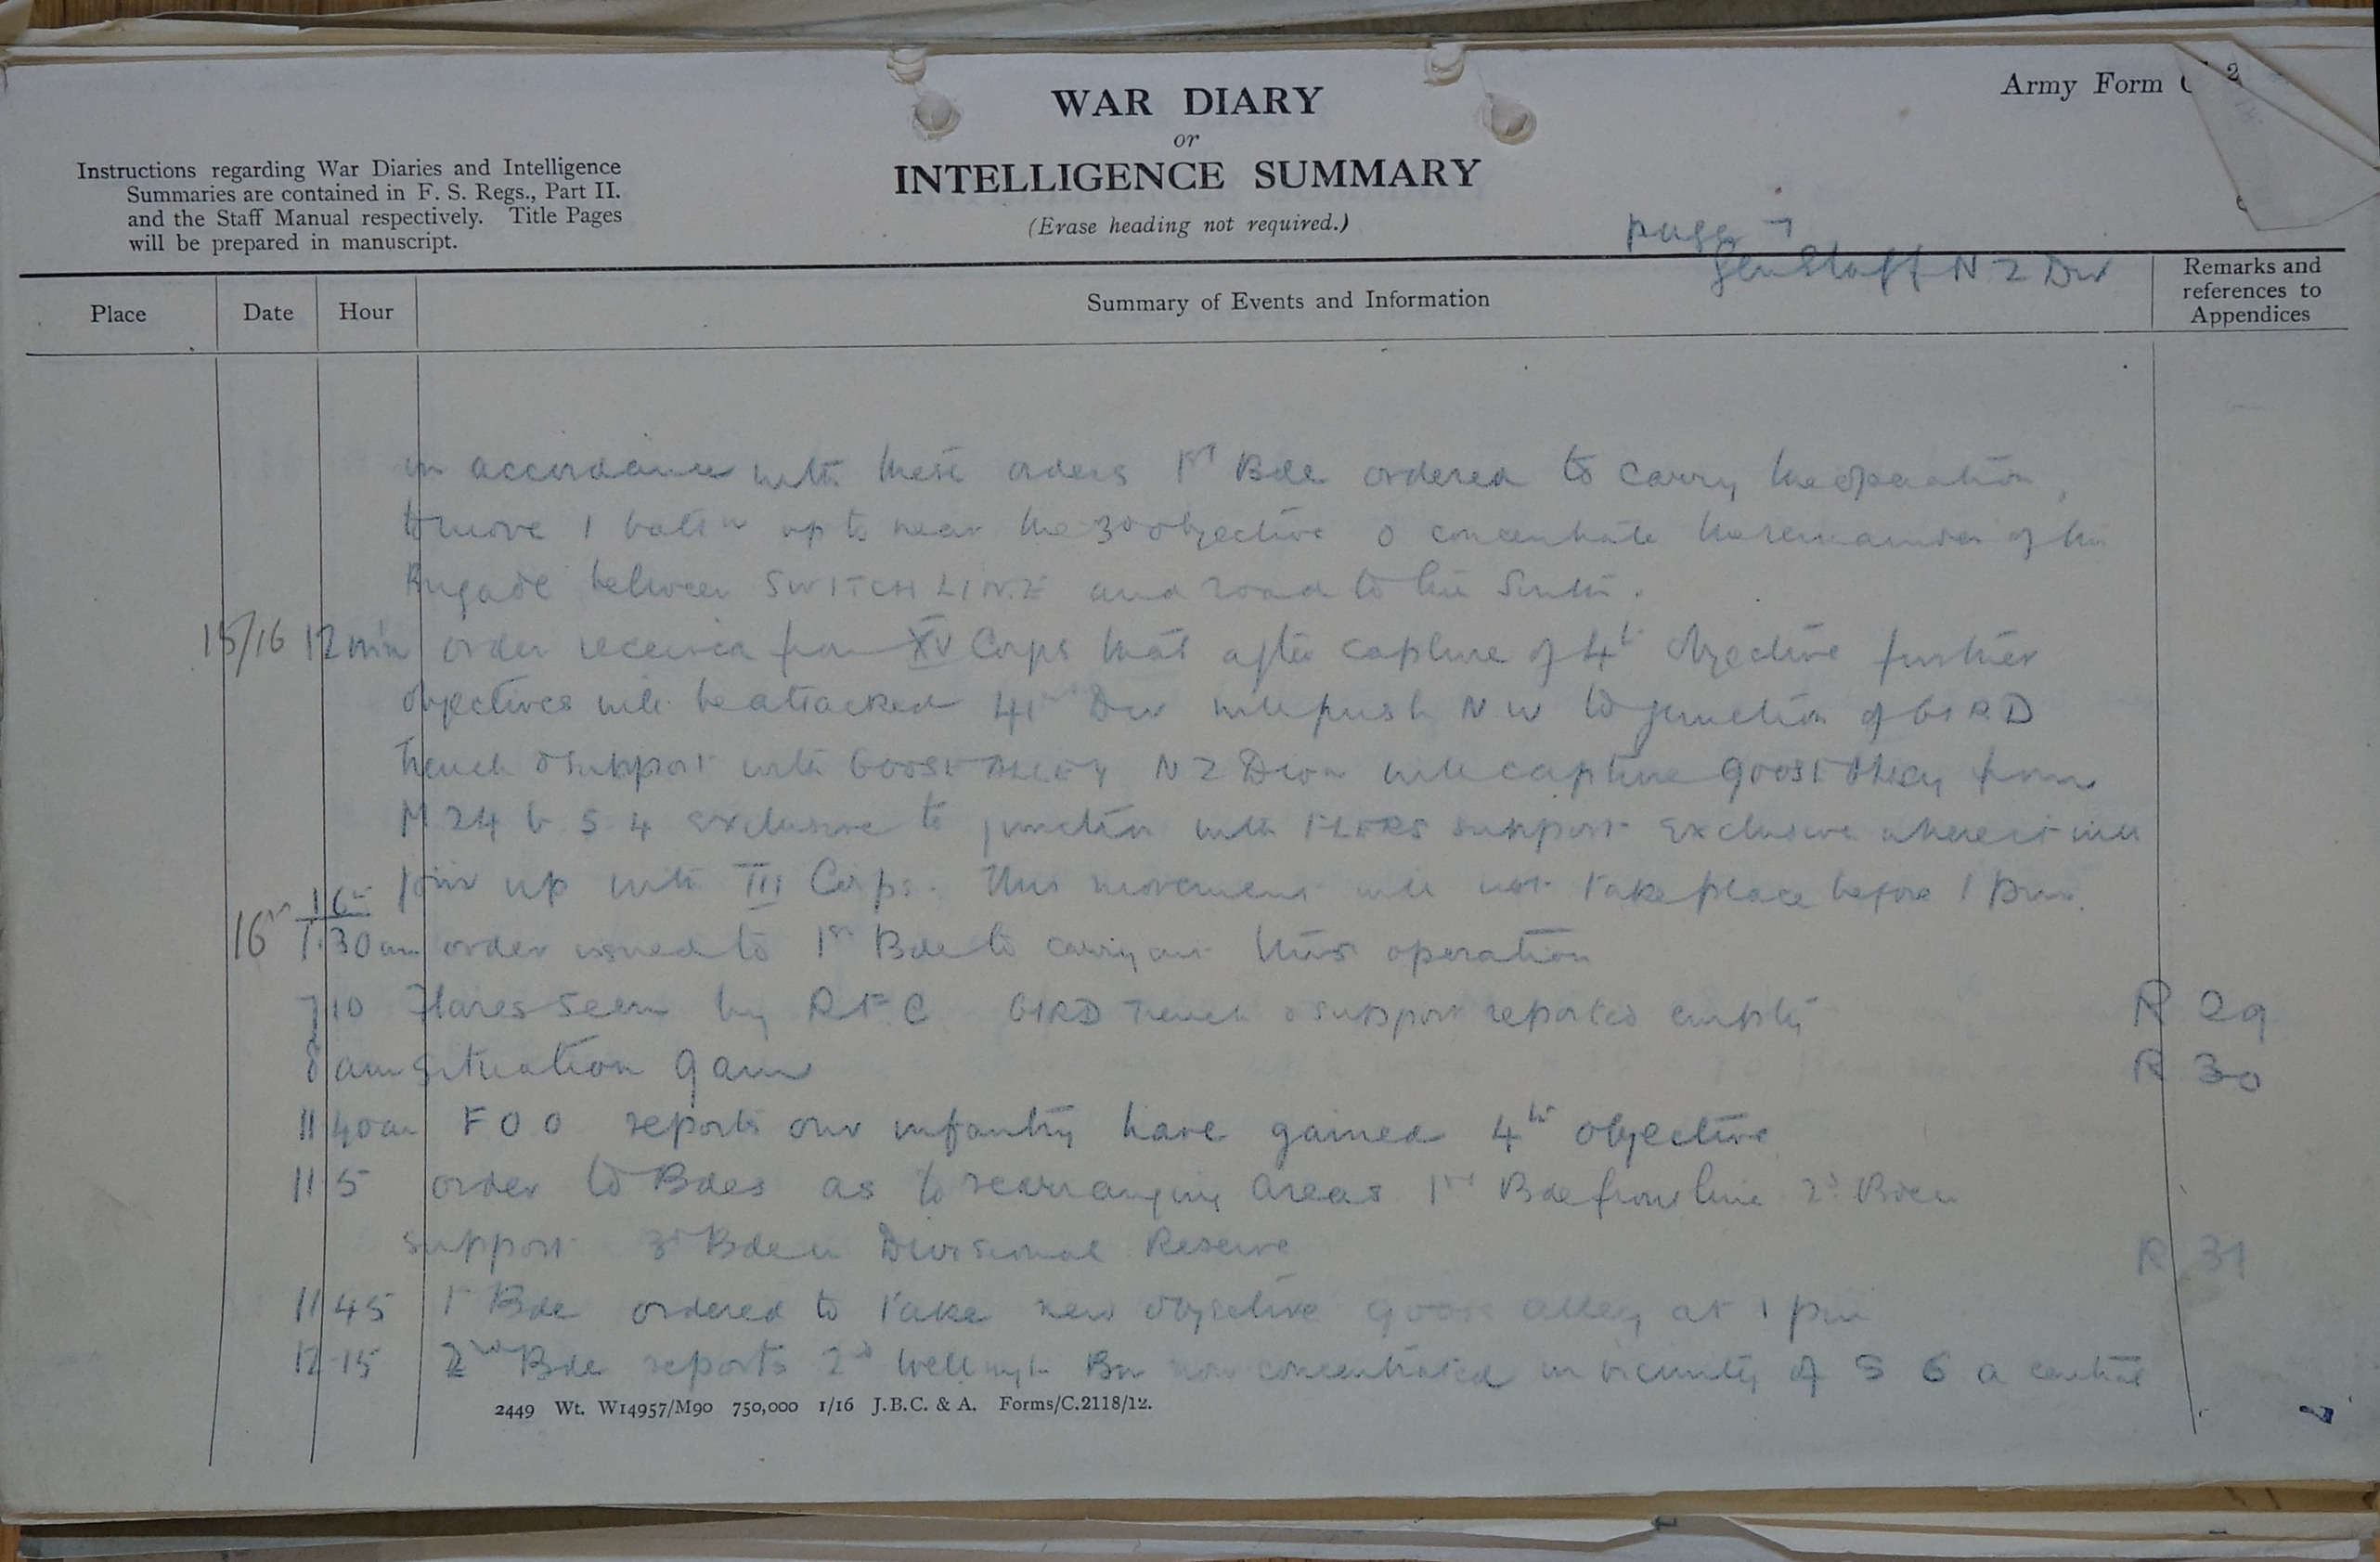 Army Form
WAR DIARY
or
INTELLIGENCE SUMMARY
(Erase heading not required.)
Instructions regarding War Diaries and Intelligence
Summaries are contained in F. S. Regs., Part II.
and the Staff Manual respectively. Title Pages
will be prepared in manuscript.
page 7
Gen Staff N Z Div
Place Date Hour Summary of Events and Information Remarks and references to Appendices
in accordance with these orders 1st Bde ordered to carry the operation,
to move 1 battn up to near the 3d objective & concentrate the remainder of the
Brigade between SWITCH LINE and road to the South.
15/16 12 mn order received from XV Corps that after capture of 4th objective further
objectives will be attacked 41st Div will push N W to junction of GIRD
trench & support with GOOSE ALLEY N Z Divn will capture goose alley from
M 24 b 5 4 exclusive to junction with FLERS support exclusive where it will
join up with III Corps. This movement will not take place before 1 pm.
16th 16th
1.30 am order issued to 1st Bde to carry out this operation
7 10 Flares seen by R F C GIRD Trench & support reported empty R 29
8 am situation 9 am R 30
11 40 am F O O reports our infantry have gained 4th objective
11 5 order to Bdes as to rearranging areas 1st Bde front line 2d Bde in
support 3d Bde in Divisional Reserve R 31
11 45 1st Bde ordered to take new objective goose alley at 1 pm
12.15 2nd Bde reports 2d Wellington Bn now concentrated in vicinity of S 6 a central
2449 Wt. W14957/M90 750,000 1/16 J.B.C. & A. Forms/C.2118/12.